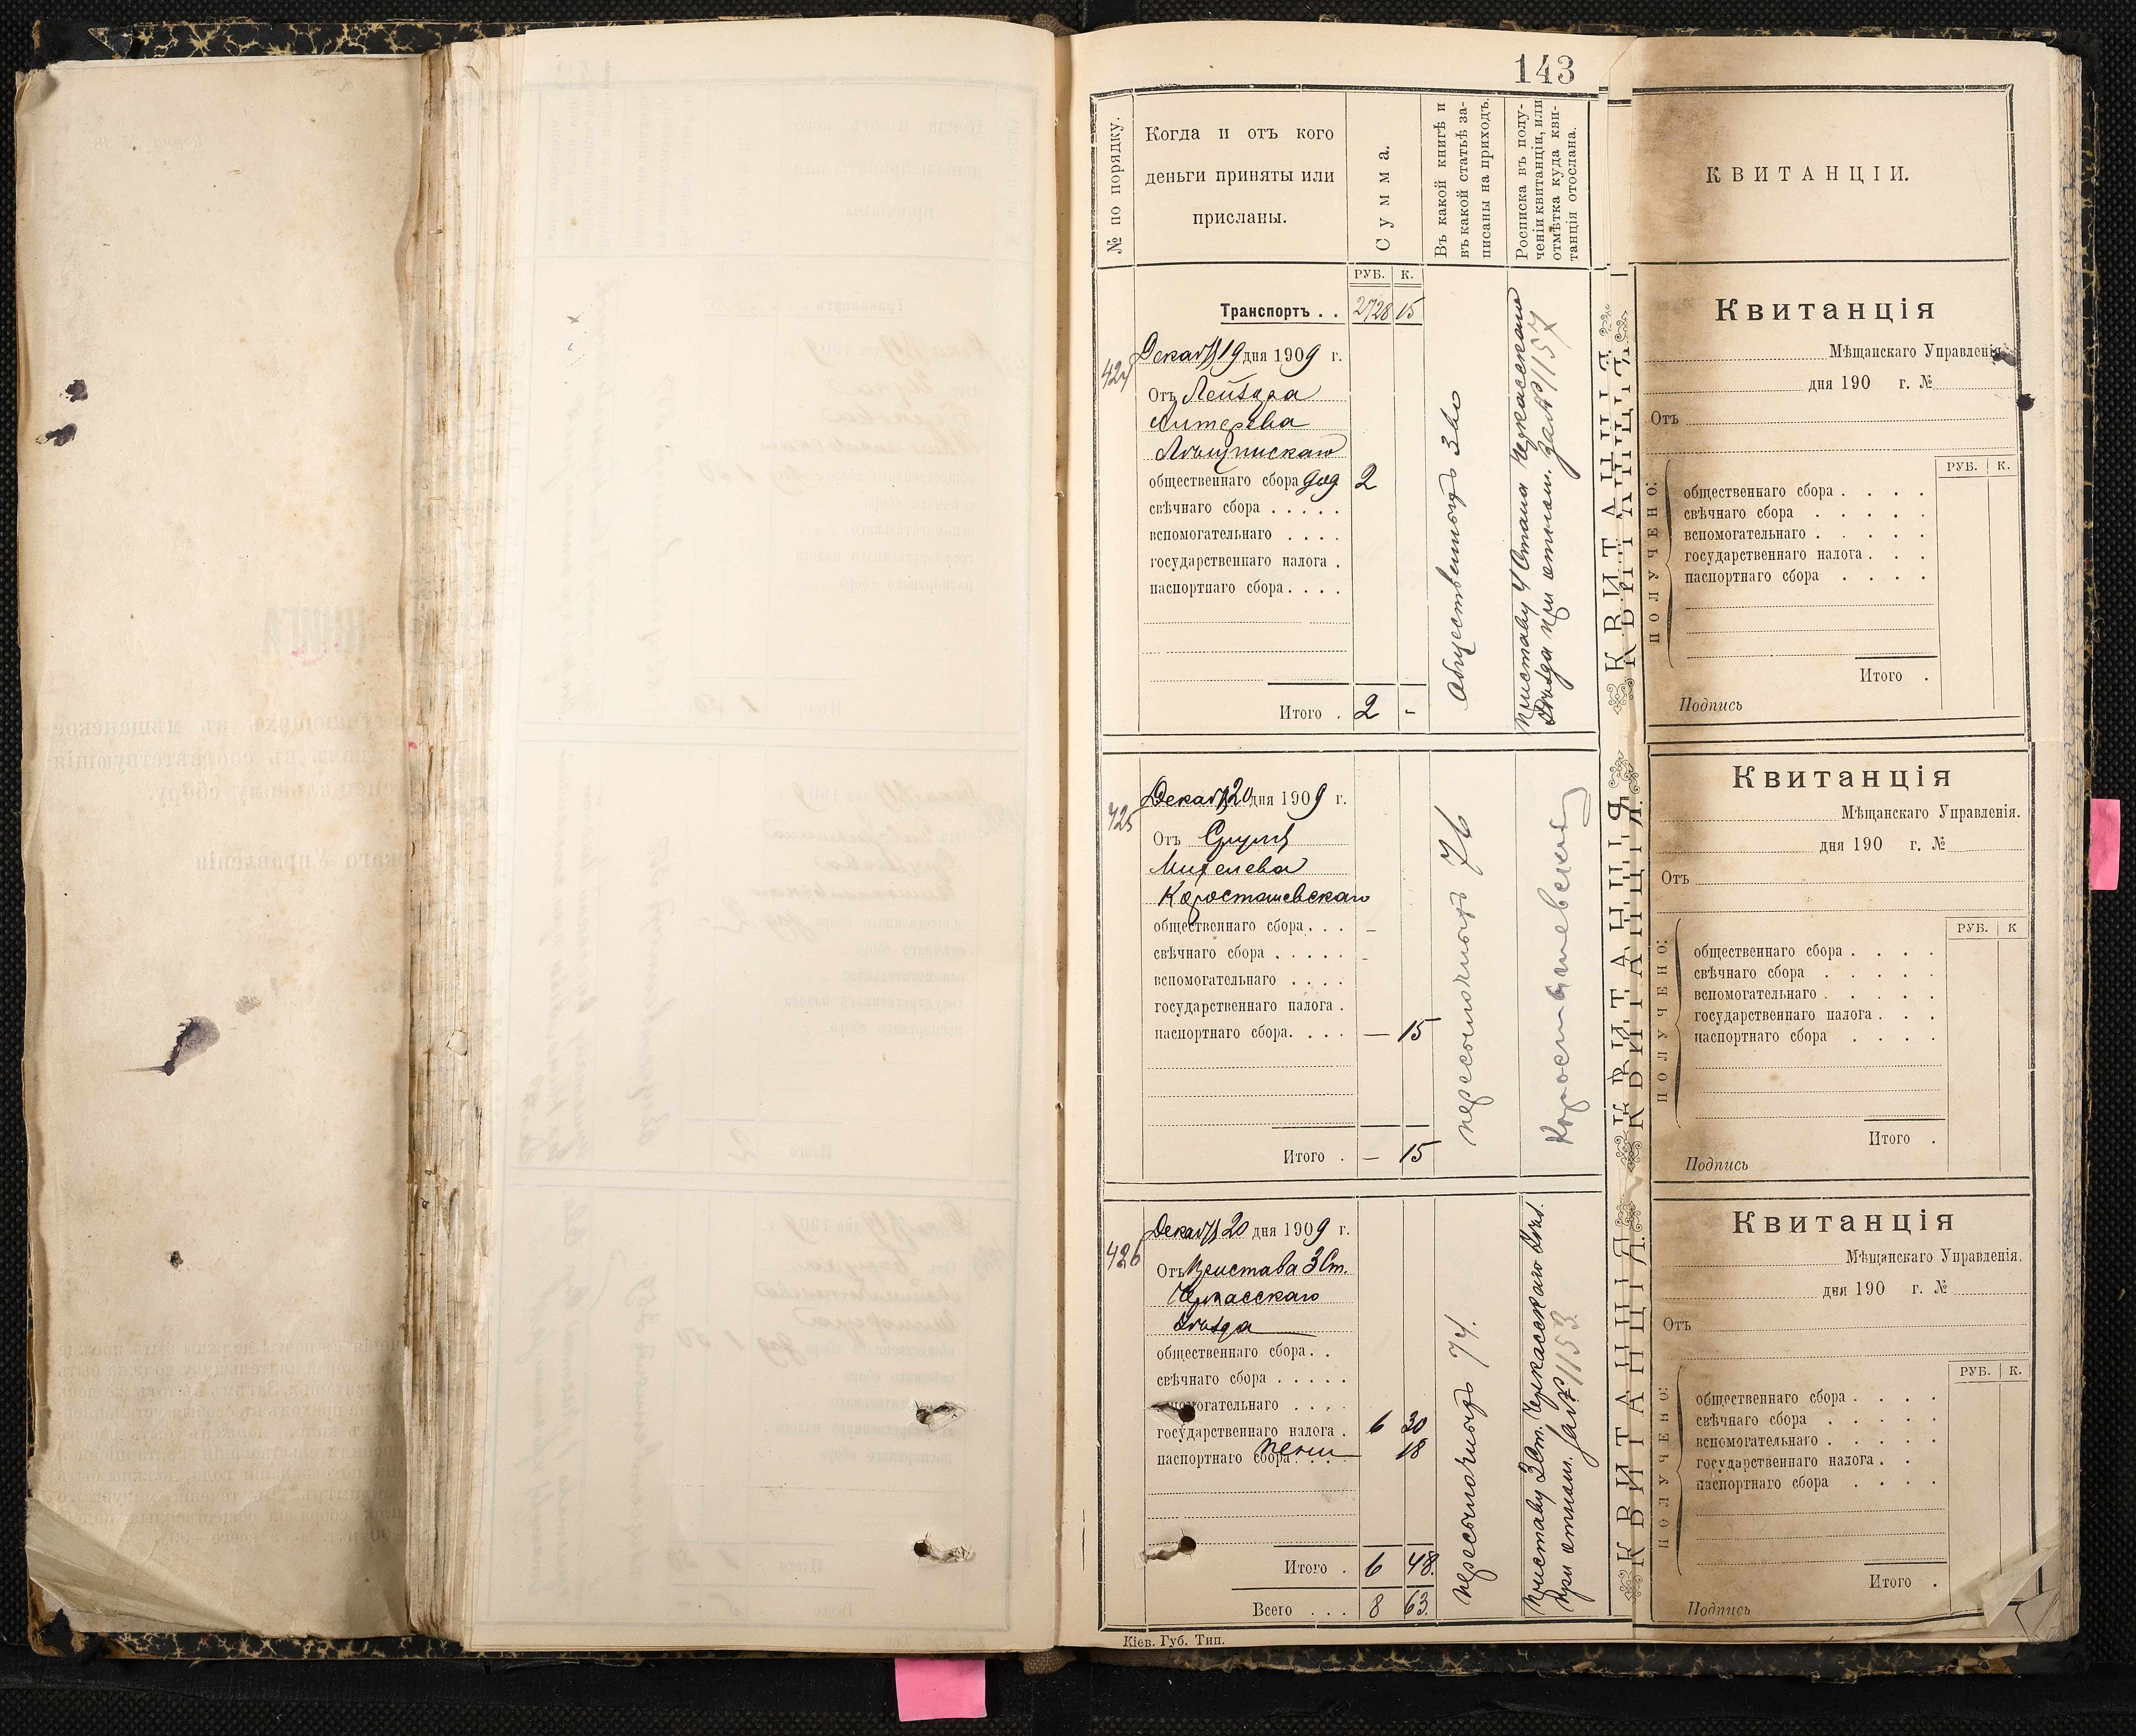 143
№ по порядку.
Когда и отъ кого
деньги приняты или
присланы.
Сумма.
Въ какой книгѣ и
въ какой статьѣ за-
писаны на приходъ.
Росписка въ полу-
ченіи квитанціи, или
отмѣтка куда кви-
танція отослана.
РУБ. К.
Транспортъ . . 2728 15
424
Декаб 19 дня 1909 г.
Отъ Лейзора
общественнаго сбора 2
свѣчнаго сбора . . . . .
вспомогательнаго . . . .
государственнаго налога .
паспортнаго сбора . . . .
Итого . 2 -
Общественныхъ
Приставу 4 Стана Черкасскаго
Уѣзда при отнош. за № 1157
425
Декаб 20 дня 1909 г.
Отъ Сруля
Михелева
Коростышевскаго
общественнаго сбора . . . -
свѣчнаго сбора . . . . . -
вспомогательнаго . . . .
государственнаго налога .
паспортнаго сбора. . . . — 15
Итого . — 15
пересылочныхъ 76
Коростышевский
426
Декаб 20 дня 1909 г.
Отъ Пристава 3 Ст.
Черкасскаго
Уѣзда
общественнаго сбора . .
свѣчнаго сбора . . . . .
вспомогательнаго . . . .
государственнаго налога . 6 30
паспортнаго сбора . . . . пени 18
Итого . 6 48.
Всего . . . 8 63.
пересылочныхъ 74.
Приставу 3 Ст. Черкасскаго Уѣз.
при отнош. за № 1153.
Кіев. Губ. Тип.
КВИТАНЦІЯ
КВИТАНЦІЯ
КВИТАНЦІЯ
КВИТАНЦІИ.
Квитанція
Мѣщанскаго Управленія.
дня 190 г. №
Отъ
РУБ. К.
ПОЛУЧЕНО:
общественнаго сбора . . . .
свѣчнаго сбора . . . . .
вспомогательнаго . . . . .
государственнаго налога . . .
паспортнаго сбора . . . .
Итого .
Подпись
Квитанція
Мѣщанскаго Управленія.
дня 190 г. №
Отъ
РУБ. К
ПОЛУЧЕНО:
общественнаго сбора . . . .
свѣчнаго сбора . . . . .
вспомогательнаго . . . . .
государственнаго налога . . .
паспортнаго сбора . . . .
Итого .
Подпись
Квитанція
Мѣщанскаго Управленія.
дня 190 г. №
Отъ
РУБ. К.
ПОЛУЧЕНО:
общественнаго сбора . . . .
свѣчнаго сбора . . . . .
вспомогательнаго . . . . .
государственнаго налога . .
паспортнаго сбора . . .
Итого .
Подпись